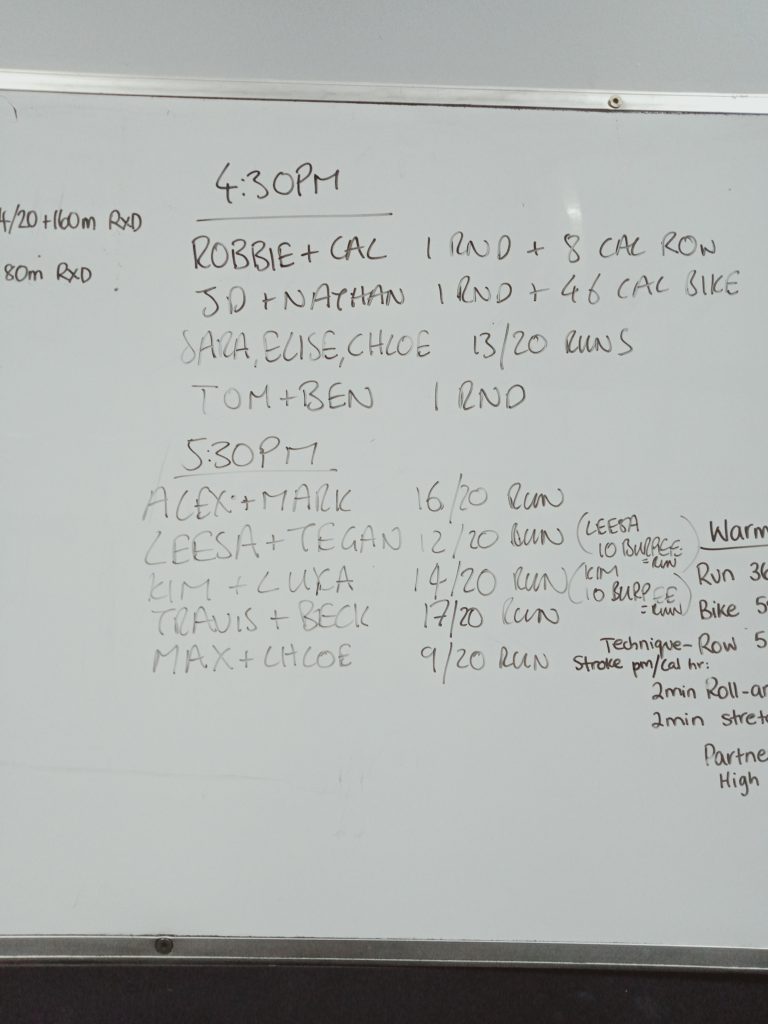 4:30PM
4/20+160m RXD
ROBBIE + CAL 1 RND + 8 CAL ROW
80m RXD
JD + NATHAN 1 RND + 46 CAL BIKE
SARA, ELISE, CHLOE 13/20 RUNS
TOM + BEN 1 RND
5:30PM
ALEX + MARK 16/20 RUN
LEESA + TEGAN 12/20 RUN (LEESA
10 BURPEE
= RUN)
KIM + LUKA 14/20 RUN (KIM
10 BURPEE
= RUN)
TRAVIS + BECK 17/20 RUN
MAX + CHLOE 9/20 RUN
Warm
Run 36
Bike 5
Technique- Row 5
Stroke pm/Cal hr:
2min Roll-ar
2min stret
Partne
High